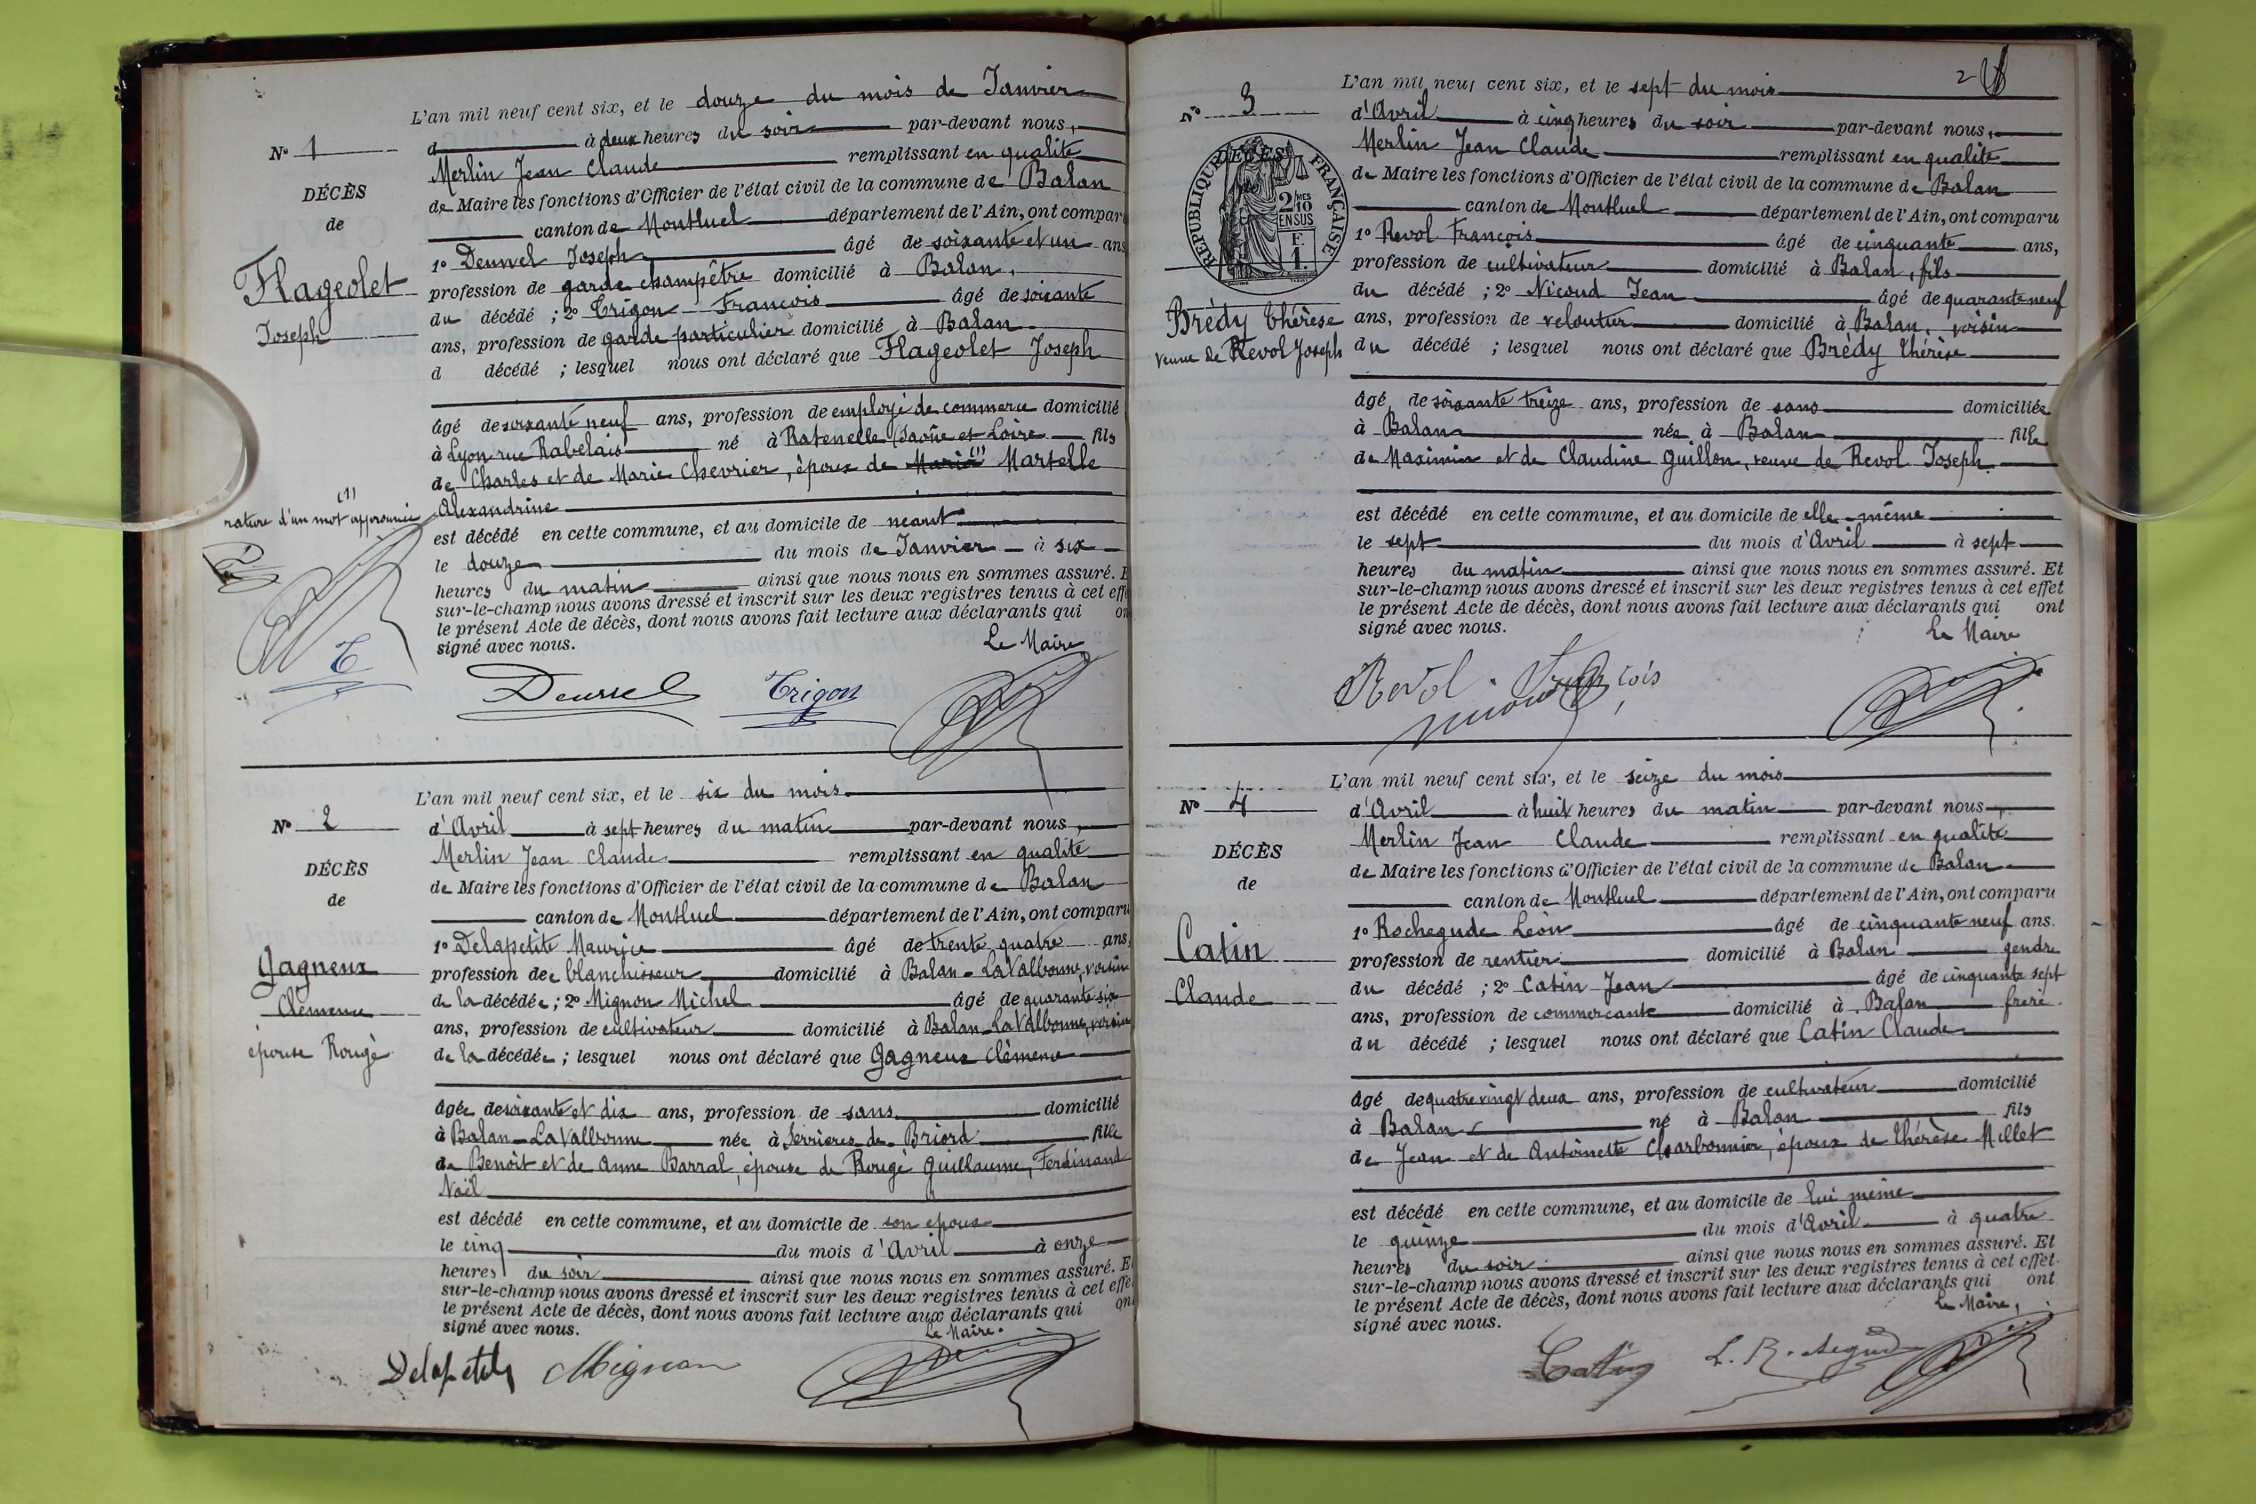 L'an mil neuf cent six, et le douze du mois de Janvier
N° 1
d à deux heures du soir par-devant nous,
Merlin Jean Claude remplissant en qualité
DÉCÈS
de Maire les fonctions d'Officier de l'état civil de la commune de Balan
de
canton de Montluel département de l'Ain, ont comparu
1° Deurvel Joseph âgé de soixante et un ans
Flageolet
profession de garde champêtre domicilié à Balan,
du décédé ; 2° Trigon François âgé de soixante
Joseph
ans, profession de garde particulier domicilié à Balan
d décédé ; lesquel nous ont déclaré que Flageolet Joseph
âgé de soixante neuf ans, profession de employé de commerce domicilié
à Lyon rue Rabelais né à Ratenelle (Saône et Loire fils
de Charles et de Marie Chevrier, époux de Maria (1) Martelle
(1)
rature d'un mot approuvée
Alexandrine
est décédé en cette commune, et au domicile de néant
le douze du mois de Janvier à six
heures du matin ainsi que nous nous en sommes assuré. E
sur-le-champ nous avons dressé et inscrit sur les deux registres tenus à cet effe
le présent Acte de décès, dont nous avons fait lecture aux déclarants qui on
signé avec nous. Le Maire
T
Deurvel Trigon
L'an mil neuf cent six, et le six du mois
N° 2
d'Avril à sept heures du matin par-devant nous,
Merlin Jean Claude remplissant en qualité
DÉCÈS
de Maire les fonctions d'Officier de l'état civil de la commune de Balan
de
canton de Montluel département de l'Ain, ont comparu
1° Delapetite Maurice âgé de trente quatre ans,
Gagneux
profession de blanchisseur domicilié à Balan-LaValbonne, voisin
Clémence
de la décédée ; 2° Mignon Michel âgé de quarante six
ans, profession de cultivateur domicilié à Balan-LaValbonne, voisin
épouse Rougé
de la décédée ; lesquel nous ont déclaré que Gagneux Clémence
âgée de soixante et dix ans, profession de sans domicilié
à Balan-LaValbonne née à Serrières de Briord fille
de Benoît et de Anne Barral, épouse de Rougé Guillaume, Ferdinand
Noël
est décédé en cette commune, et au domicile de son epoux
le cinq du mois d'Avril à onze
heures du soir ainsi que nous nous en sommes assuré. E
sur-le-champ nous avons dressé et inscrit sur les deux registres tenus à cet effe
le présent Acte de décès, dont nous avons fait lecture aux déclarants qui on
signé avec nous. Le Maire.
Delapetite Mignon
2
L'an mil neuf cent six, et le sept du mois
N° 3
d'Avril à cinq heures du soir par-devant nous,
Merlin Jean Claude remplissant en qualité
DÉCÈS
RÉPUBLIQUE FRANÇAISE
2 MES
10
EN SUS
F.
1.
de Maire les fonctions d'Officier de l'état civil de la commune de Balan
canton de Montluel département de l'Ain, ont comparu
1° Revol François âgé de cinquante ans,
profession de cultivateur domicilié à Balan, fils
du décédé ; 2° Nicoud Jean âgé de quarante neuf
Brédy Thérèse
ans, profession de veloutier domicilié à Balan, voisin
veuve de Revol Joseph
du décédé ; lesquel nous ont déclaré que Brédy Thérèse
âgé de soixante treize ans, profession de sans domiciliée
à Balan née à Balan fille
de Maximin et de Claudine Guillon, veuve de Revol Joseph
est décédé en cette commune, et au domicile de elle-même
le sept du mois d'Avril à sept
heures du matin ainsi que nous nous en sommes assuré. Et
sur-le-champ nous avons dressé et inscrit sur les deux registres tenus à cet effet
le présent Acte de décès, dont nous avons fait lecture aux déclarants qui ont
signé avec nous. Le Maire
Revol François
L'an mil neuf cent six, et le seize du mois
N° 4
d'Avril à huit heures du matin par-devant nous,
Merlin Jean Claude remplissant en qualité
DÉCÈS
de Maire les fonctions d'Officier de l'état civil de la commune de Balan
de
canton de Montluel département de l'Ain, ont comparu
1° Rochegude Léon âgé de cinquante neuf ans.
Catin
profession de rentier domicilié à Balan gendre
Claude
du décédé ; 2° Catin Jean âgé de cinquante sept
ans, profession de commerçante domicilié à Balan frère.
du décédé ; lesquel nous ont déclaré que Catin Claude
âgé de quatre vingt deux ans, profession de cultivateur domicilié
à Balan né à Balan fils
de Jean et de Antoinette Charbonnier, époux de Thérèse Millet
est décédé en cette commune, et au domicile de lui même
le quinze du mois d'Avril à quatre
heures du soir ainsi que nous nous en sommes assuré. Et
sur-le-champ nous avons dressé et inscrit sur les deux registres tenus à cet effet.
le présent Acte de décès, dont nous avons fait lecture aux déclarants qui ont
signé avec nous. Le Maire,
Catin L. Rochegude